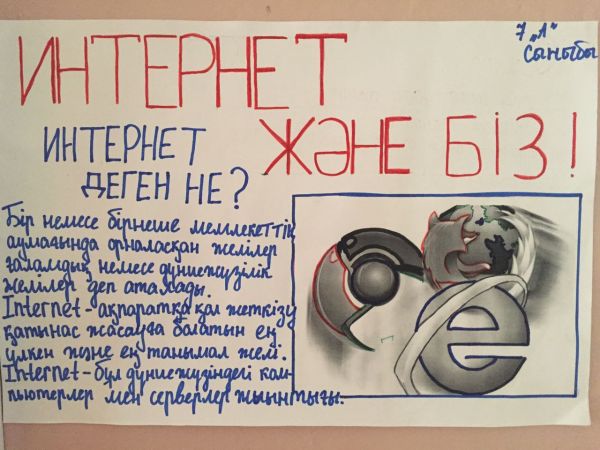 ИНТЕРНЕТ
7 „Л"
Сыныбы
ЖӘНЕ БІЗ!
ИНТЕРНЕТ
ДЕГЕН НЕ?
Бір немесе бірнеше мемлекеттік
аумағында орналасқан желілер
ғаламдық немесе дүниежүзілік
желілер деп аталады.
Internet-ақпаратқа қол жеткізу
қатынас жасауға болатын ең
үлкен және ең танымал желі.
Internet-бұл дүниежүзіндегі ком-
пьютерлер мен серверлер жиынтығы.